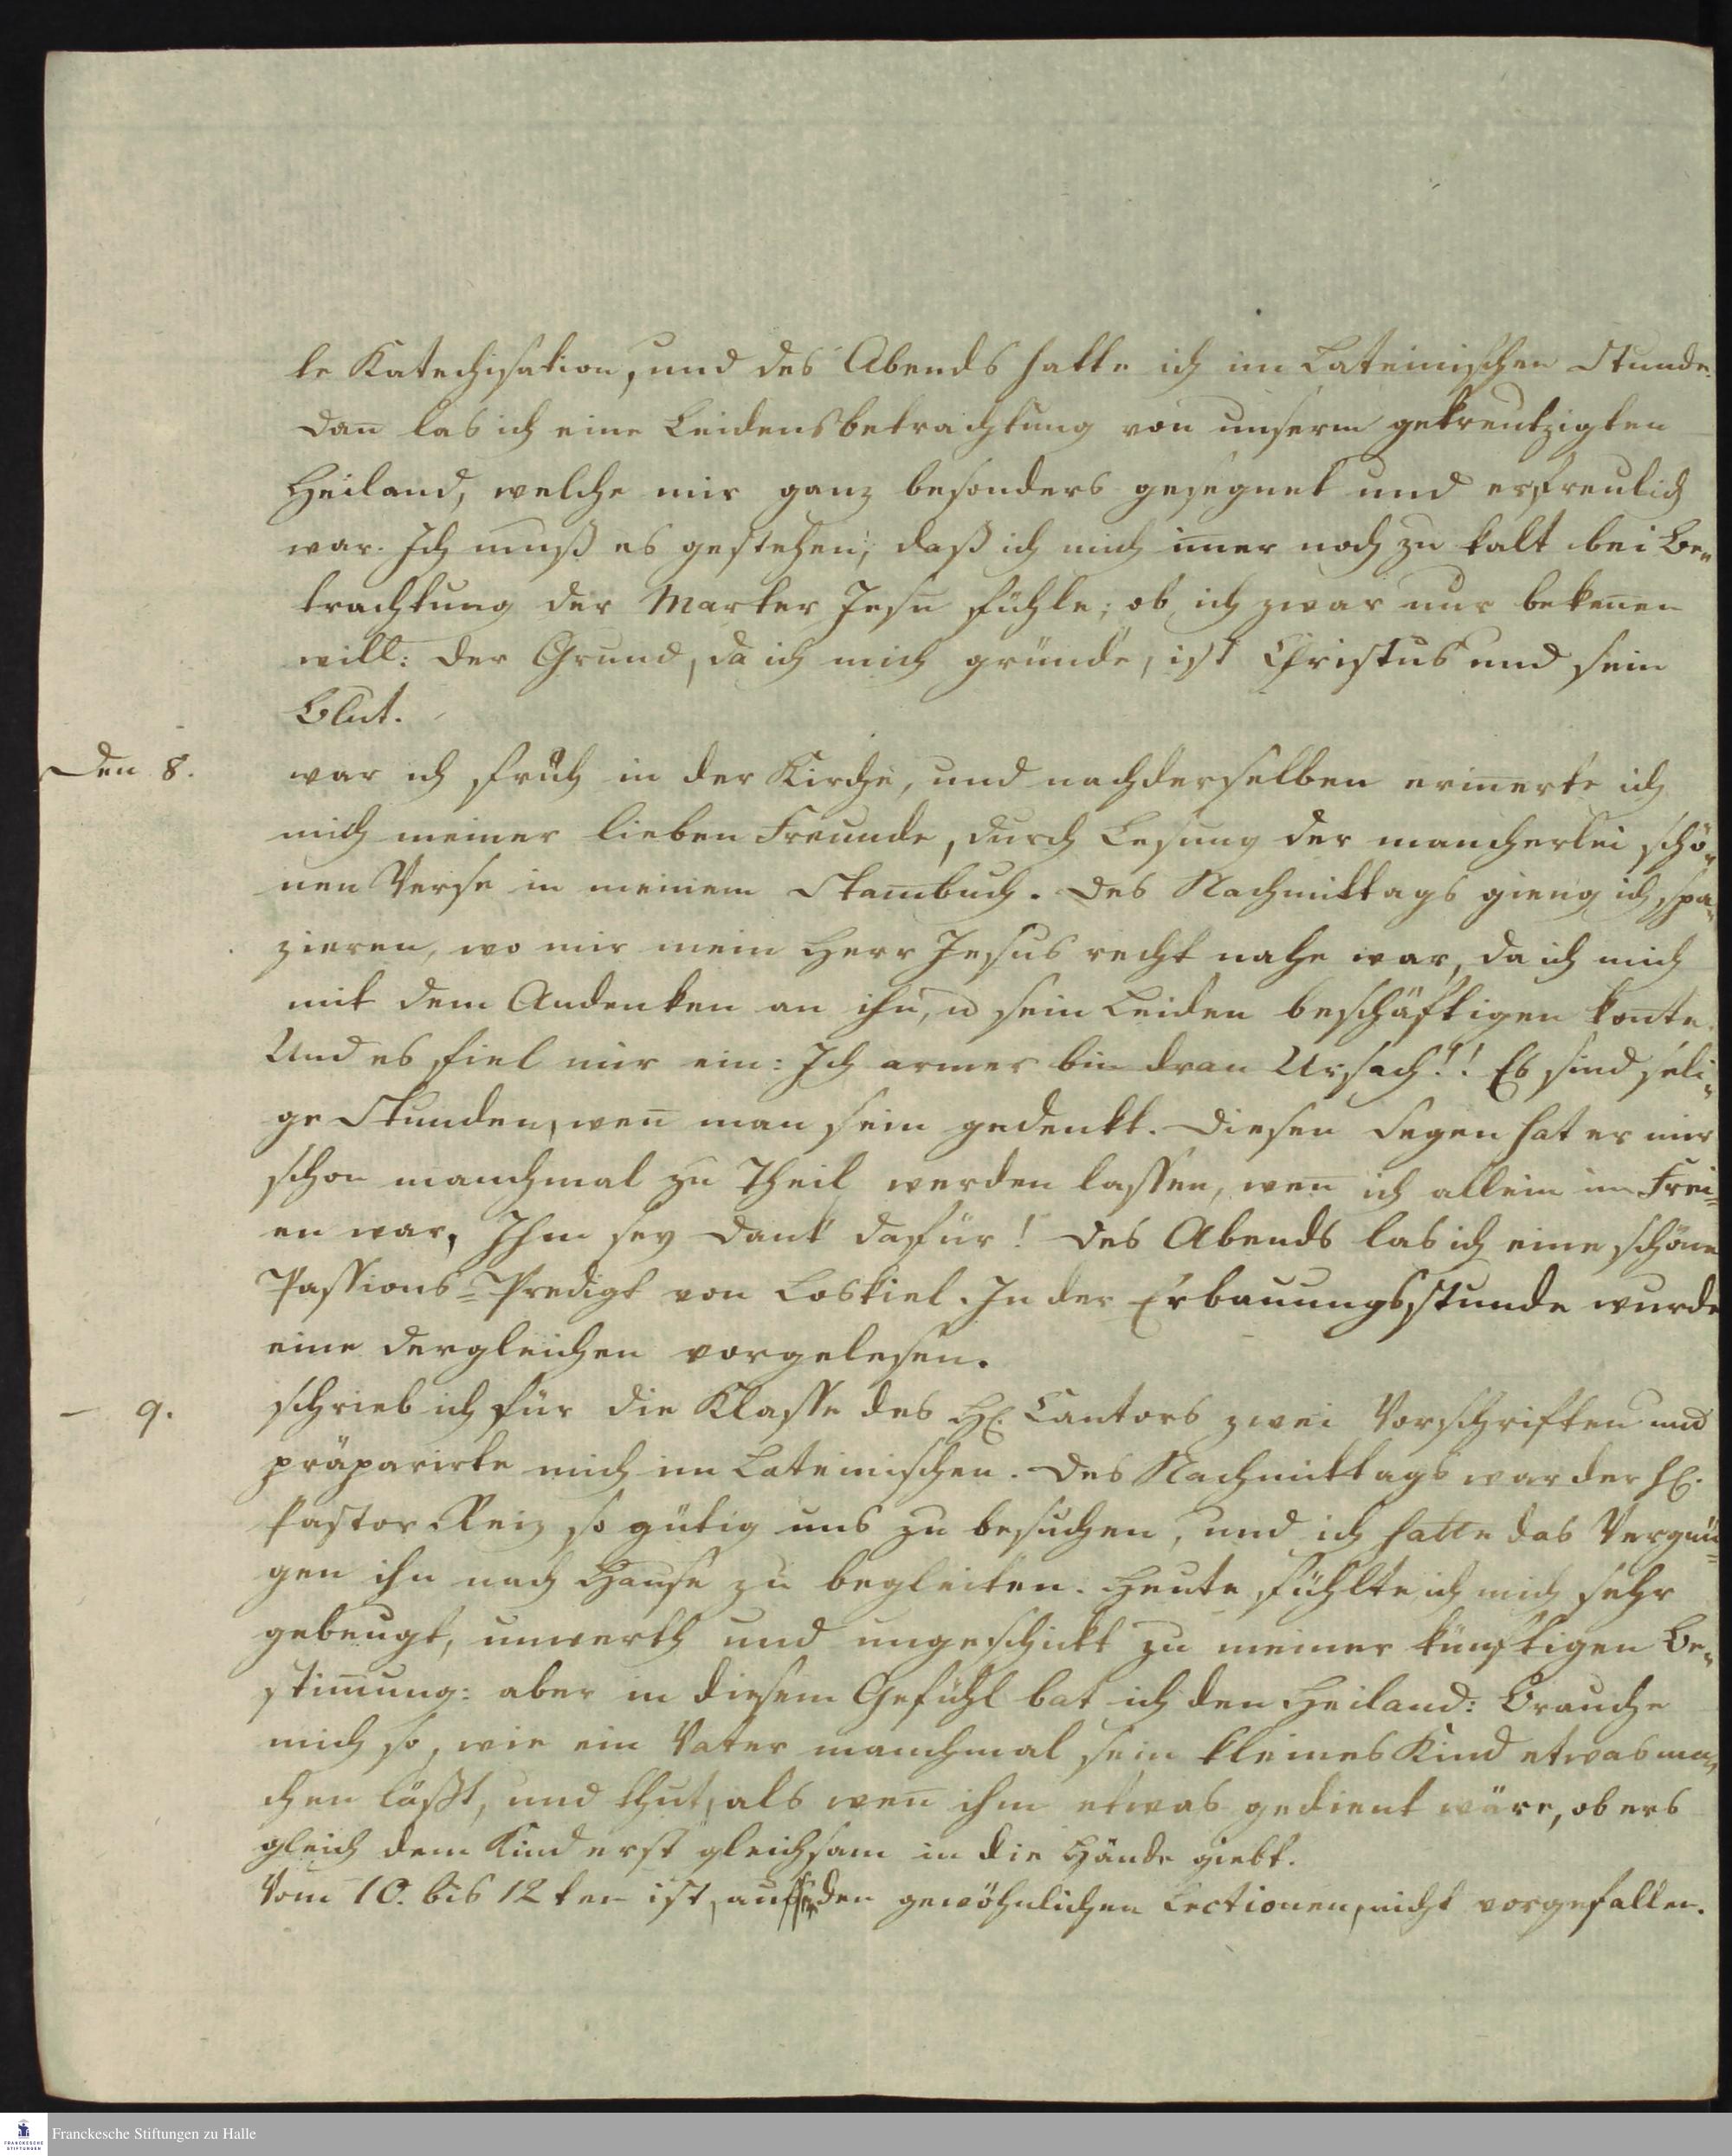 te Katechisation, und des Abends hatte ich im Lateinischen Stunde.
Dan̄ las ich eine Leidensbetrachtung von unserm gekreutzigten
Heiland, welche mir ganz besonders gesegnet und erfreulich
war. Ich muß es gestehen, daß ich mich im̄er noch zu kalt bei Be„
trachtung der Marter Jesu fühle; ob ich zwar nur beken̄en
will: der Grund, da ich mich gründe, ist Christus und sein
Blut.
Den 8. war ich früh in der Kirche, und nach derselben erin̄erte ich
mich meiner lieben Freunde, durch Lesung der mancherlei schö„
nen Verse in meinem Stam̄buch. Des Nachmittags gieng ich spa„
zieren, wo mir mein Herr Jesus recht nahe war, da ich mich
mit dem Andenken an ihn, u sein Leiden beschäftigen kon̄te.
Und es fiel mir ein: Ich armer bin dran Ursach!! Es sind seli„
ge Stunden, wen̄ man sein gedenkt. Diesen Segen hat er mir
schon manchmal zu Theil werden lassen, wen̄ ich allein im Frei=
en war, Ihm sey Dank dafür! Des Abends las ich eine schöne
Passions=Predigt von Loskiel. In der Erbauungsstunde wurde
eine dergleichen vorgelesen.
— 9. schrieb ich für die Klasse des H. Cantors zwei Vorschriften und
präparirte mich im Lateinischen. Des Nachmittags war der H.
Pastor Reiz so gütig uns zu besuchen, und ich hatte das Vergnü=
gen ihn nach Hause zu begleiten. Heute fühlte ich mich sehr
gebeugt, unwerth und ungeschickt zu meiner künftigen Be„
stim̄ung: aber in diesem Gefühl bat ich den Heiland: Brauche
mich so, wie ein Vater manchmal sein kleines Kind etwas ma„
chen läßt, und thut, als wen̄ ihm etwas gedient wäre, ob ers
gleich dem Kind erst gleichsam in die Hände giebt.
Vom 10. bis 12ten ist, ausser den gewöhnlichen Lectionen, nicht vorgefallen.
Franckesche Stiftungen zu Halle